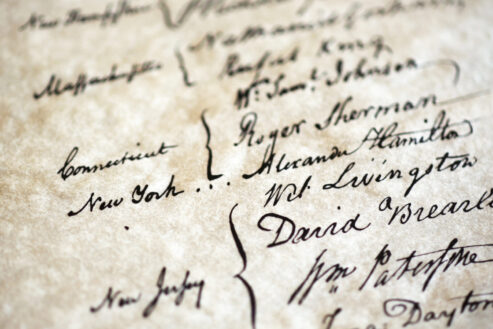 New Hampshire {
Massachusetts { Nathaniel Gorham
Rufus King
Connecticut { Wm. Saml. Johnson
Roger Sherman
New York . . . Alexander Hamilton
New Jersey { Wil: Livingston
David Brearley
Wm Paterson
Dayton